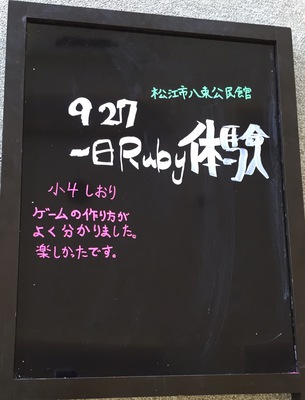 松江市八束公民館
9 27
一日Ruby体験
小4 しおり
ゲームの作り方が
よく分かりました。
楽しかったです。